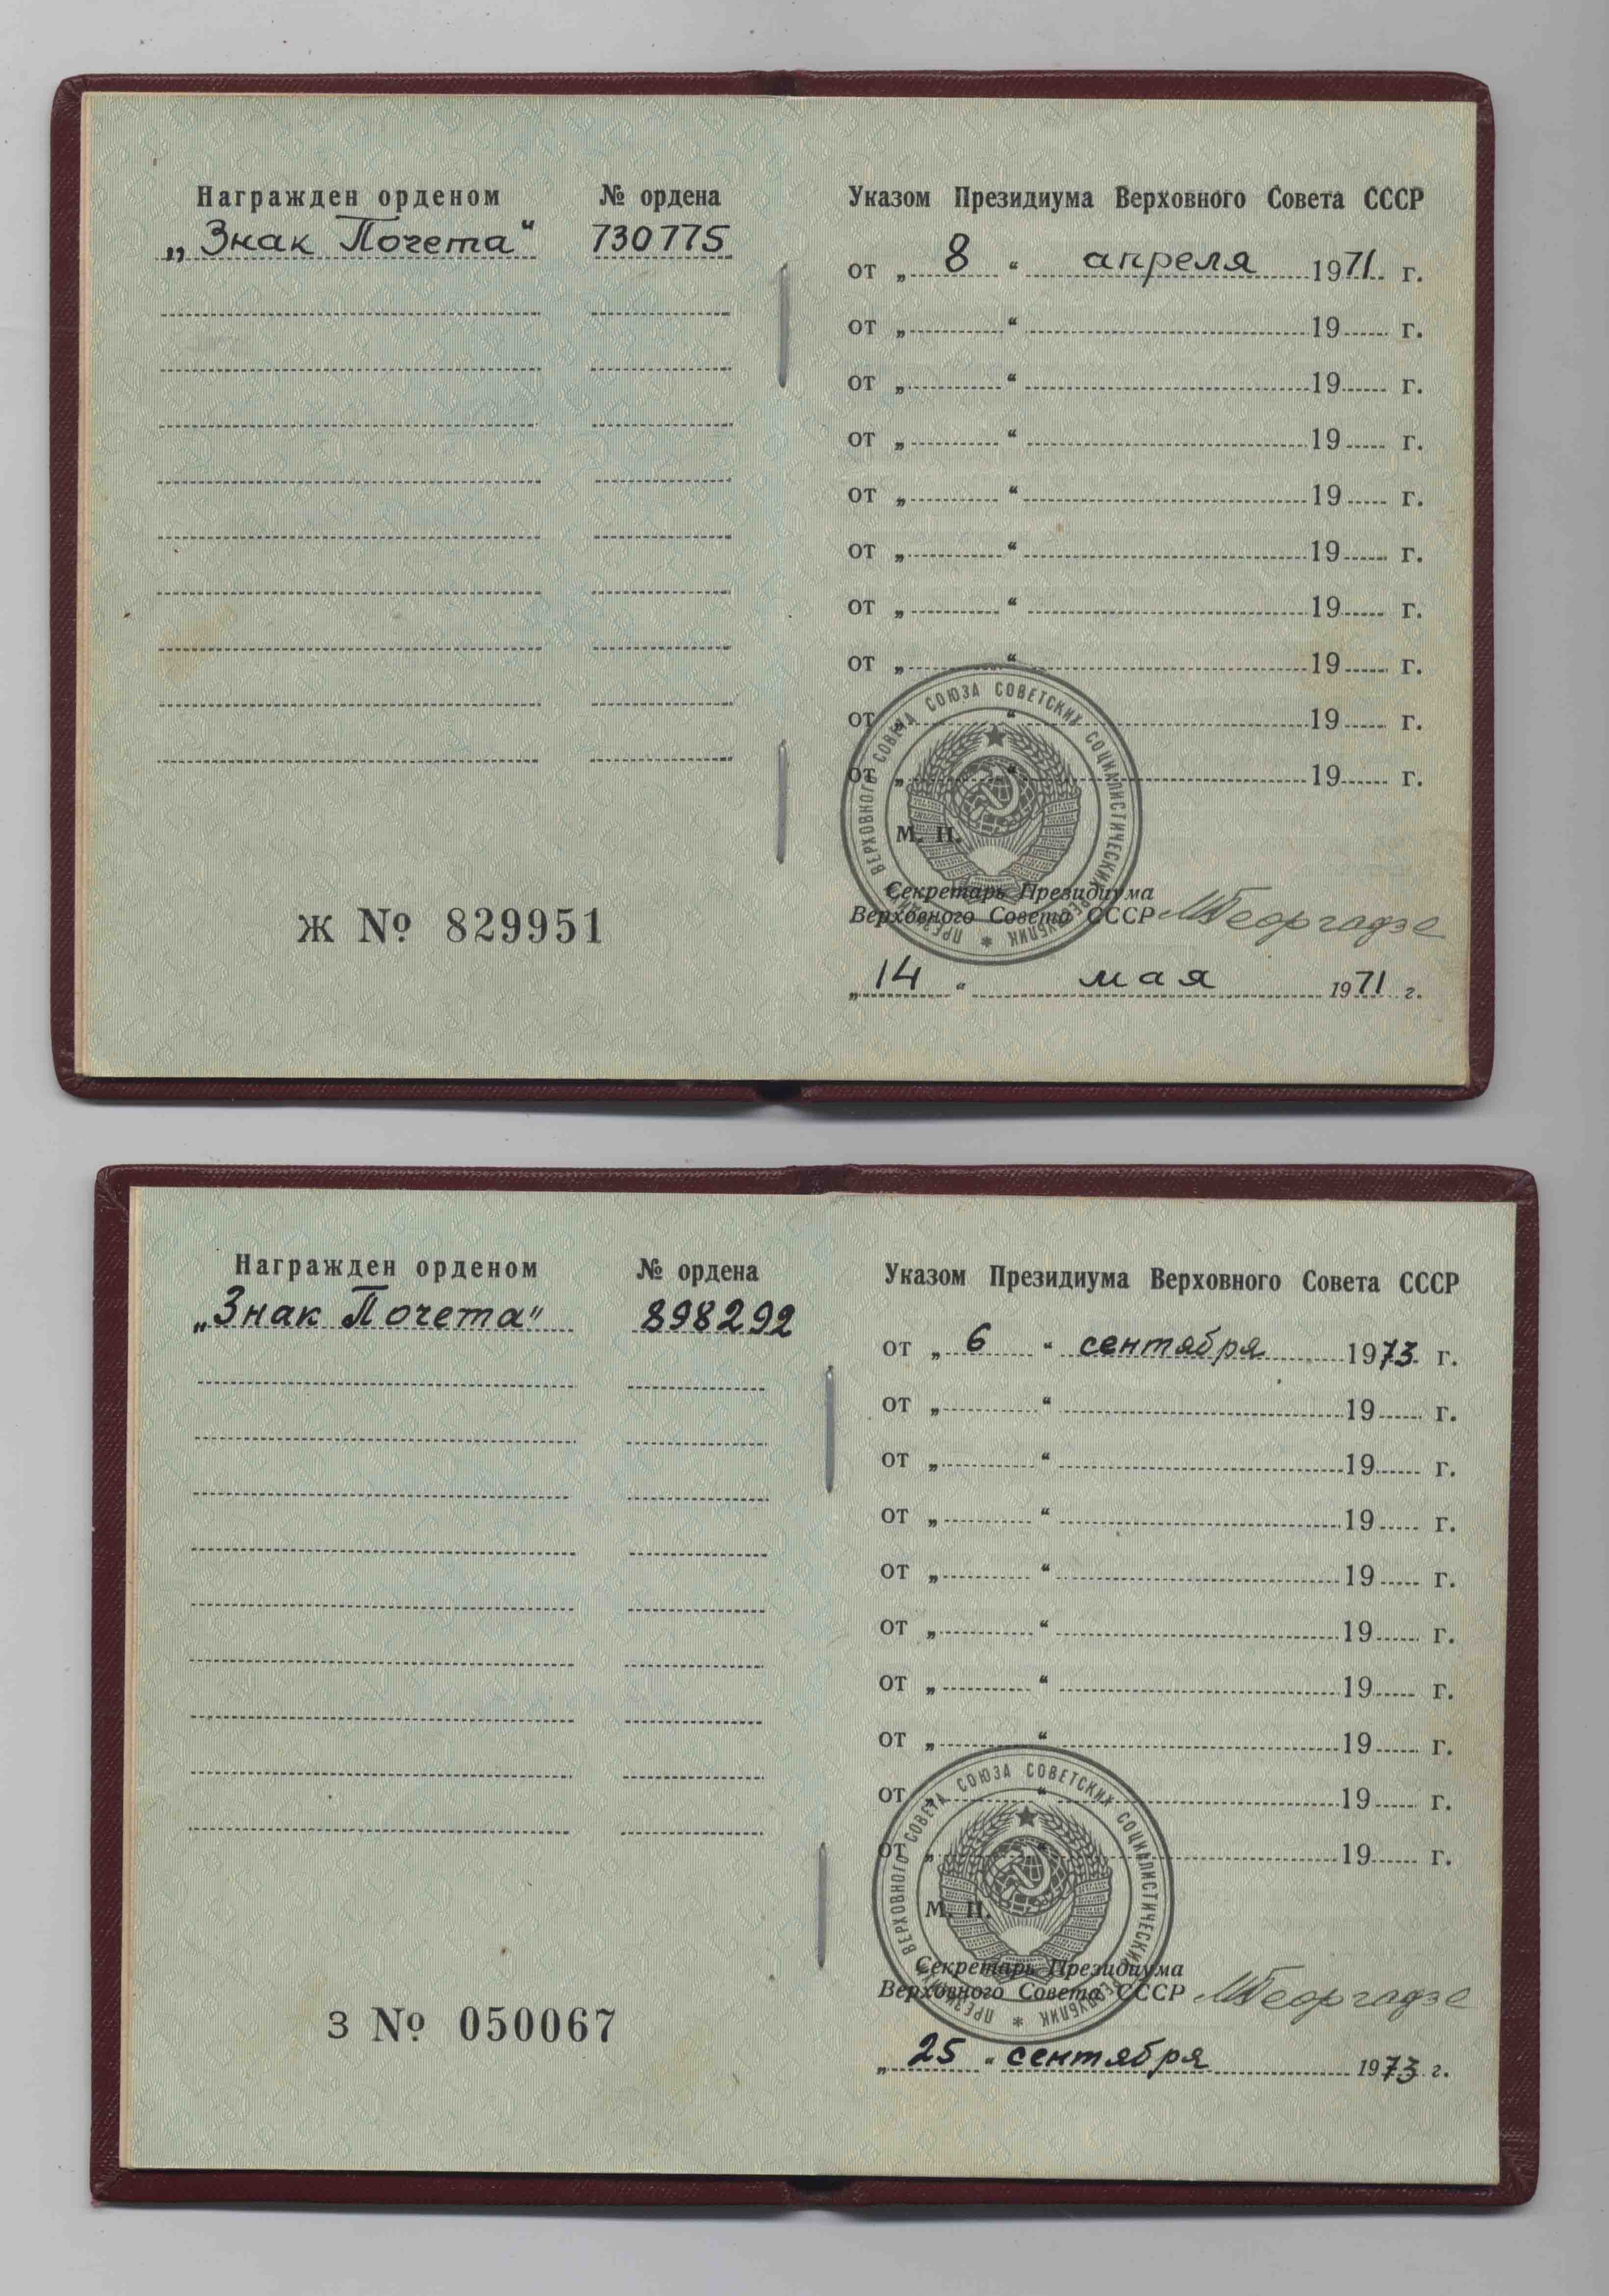 Награжден орденом № ордена
„Знак Почета“ 730775
Ж № 829951
Указом Президиума Верховного Совета СССР
от „ 8 “ апреля 1971 г.
от „ “ 19 г.
от „ “ 19 г.
от „ “ 19 г.
от „ “ 19 г.
от „ “ 19 г.
от „ “ 19 г.
от „ “ 19 г.
от „ “ 19 г.
от „ “ 19 г.
ПРЕЗИДИУМ ВЕРХОВНОГО СОВЕТА СОЮЗА СОВЕТСКИХ СОЦИАЛИСТИЧЕСКИХ РЕСПУБЛИК *
М. П.
Секретарь Президиума
Верховного Совета СССР МГеоргадзе
„ 14 “ мая 1971 г.
Награжден орденом № ордена
„Знак Почета" 898292
З № 050067
Указом Президиума Верховного Совета СССР
от „ 6 “ сентября 1973 г.
от „ “ 19 г.
от „ “ 19 г.
от „ “ 19 г.
от „ “ 19 г.
от „ “ 19 г.
от „ “ 19 г.
от „ “ 19 г.
от „ “ 19 г.
от „ “ 19 г.
ПРЕЗИДИУМ ВЕРХОВНОГО СОВЕТА СОЮЗА СОВЕТСКИХ СОЦИАЛИСТИЧЕСКИХ РЕСПУБЛИК *
М. П.
Секретарь Президиума
Верховного Совета СССР МГеоргадзе
„ 25 “ сентября 1973 г.